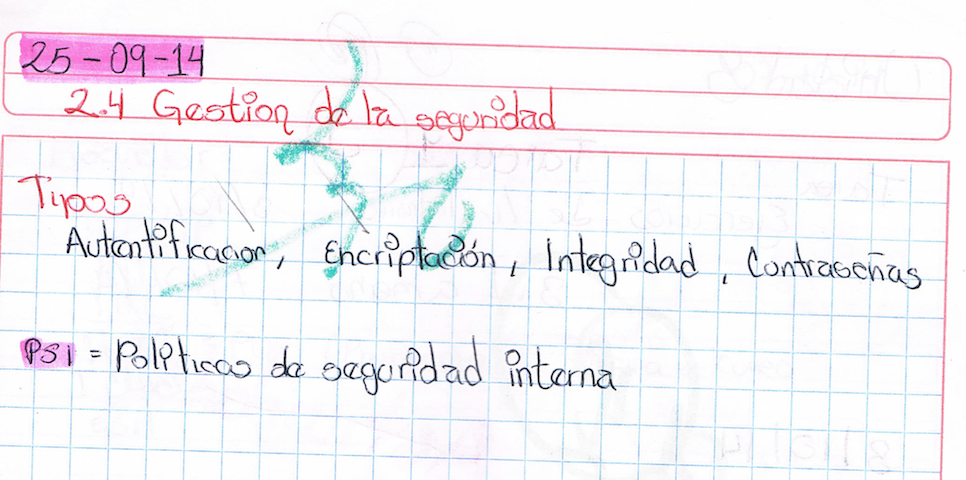 25-09-14
2.4 Gestion de la seguridad
Tipos
Autentificacion, Encriptación, Integridad, Contraseñas
PSI = Politicas de seguridad interna